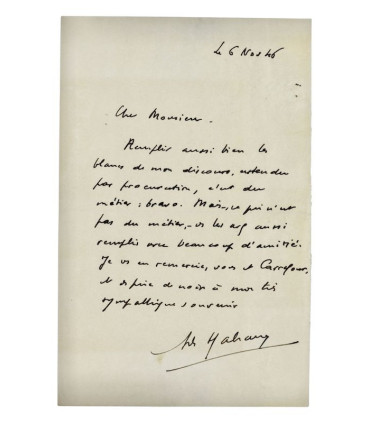 Le 6 Nov 46
Cher Monsieur.
Remplir aussi bien les
blancs de mon discours, entendu
par procuration, c'est du
métier : bravo. Mais, ce qui n'est
pas du métier, - vs les avez aussi
remplis avec beaucoup d'amitié.
Je vs en remercie, vous et Carrefour,
et de à mon très
sympathique souvenir